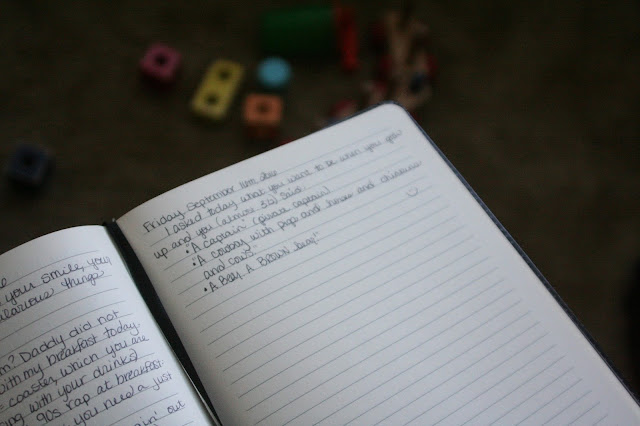 e
your smile, you
hilarious things
m? Daddy did not
with my breakfast today.
coaster, which you are
ing with your drinks)
90s rap at breakfast.
you need a just
ain' out
Friday, September 16th, 2016
I asked today what you want to be when you grow
up and you (almost 3½) said:
• "A captain" (pirate captain)
• "A cowboy with pigs and horse and chickens
and cows"
• "A Bear. A Brown bear"